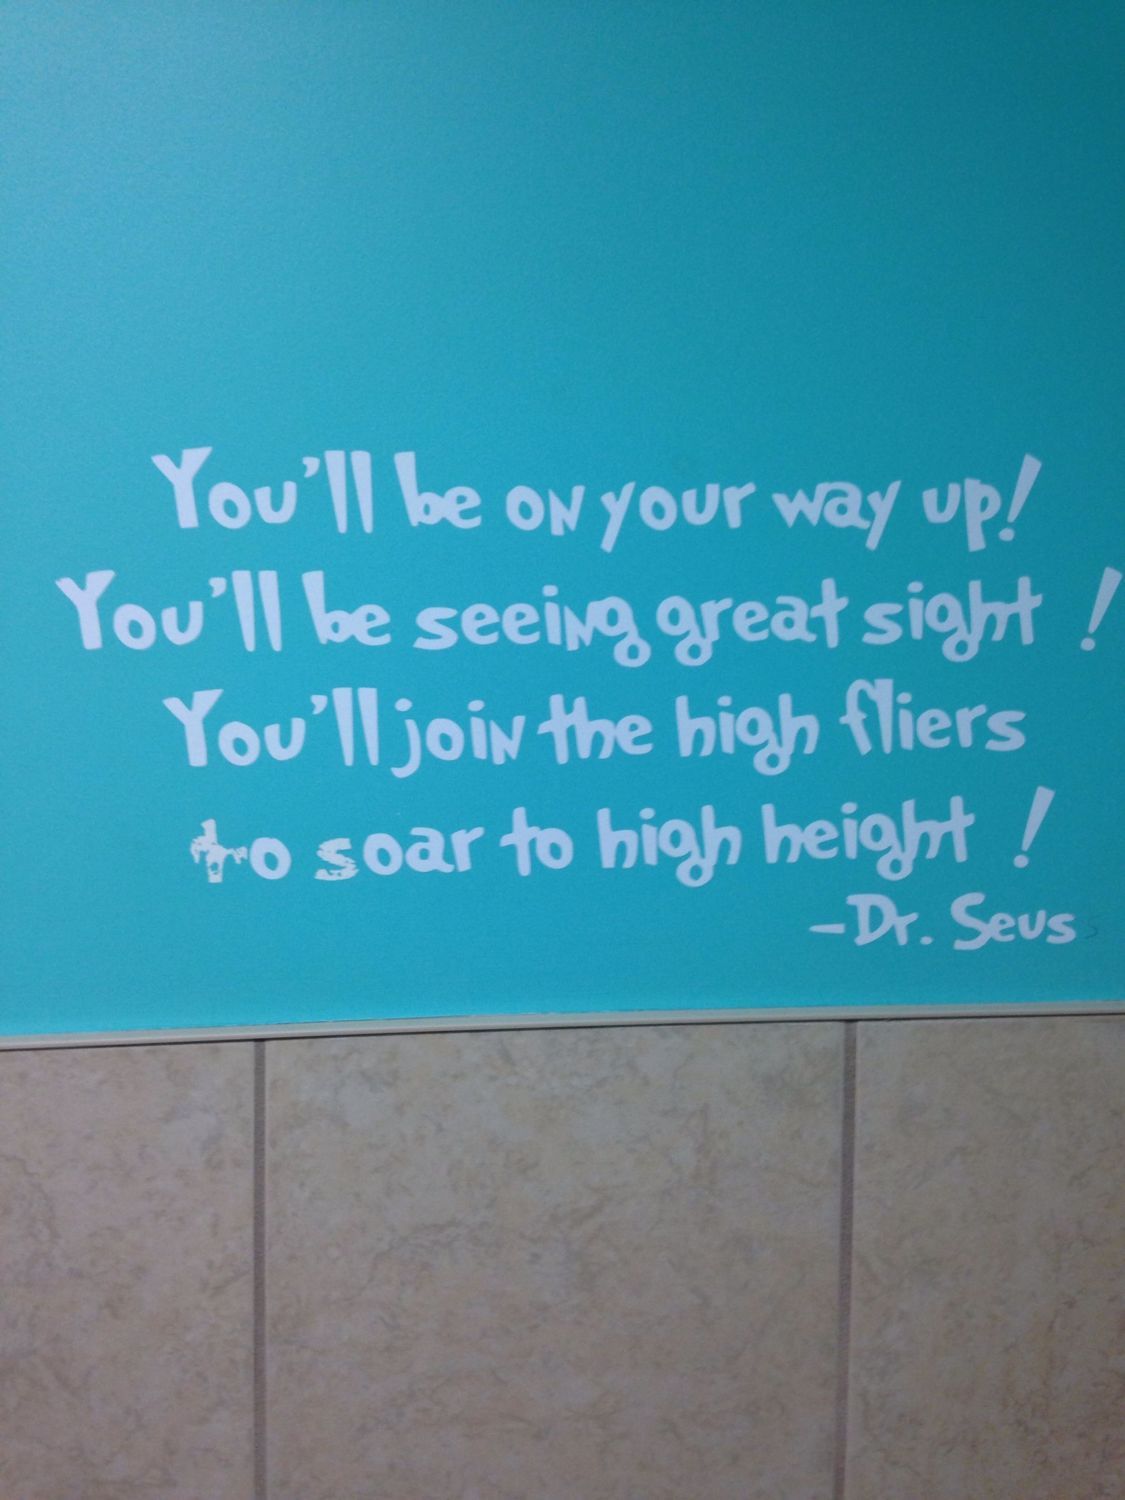 You'll be on your way up!
You'll be seeing great sight !
You'll join the high fliers
to soar to high height !
-Dr. Seus